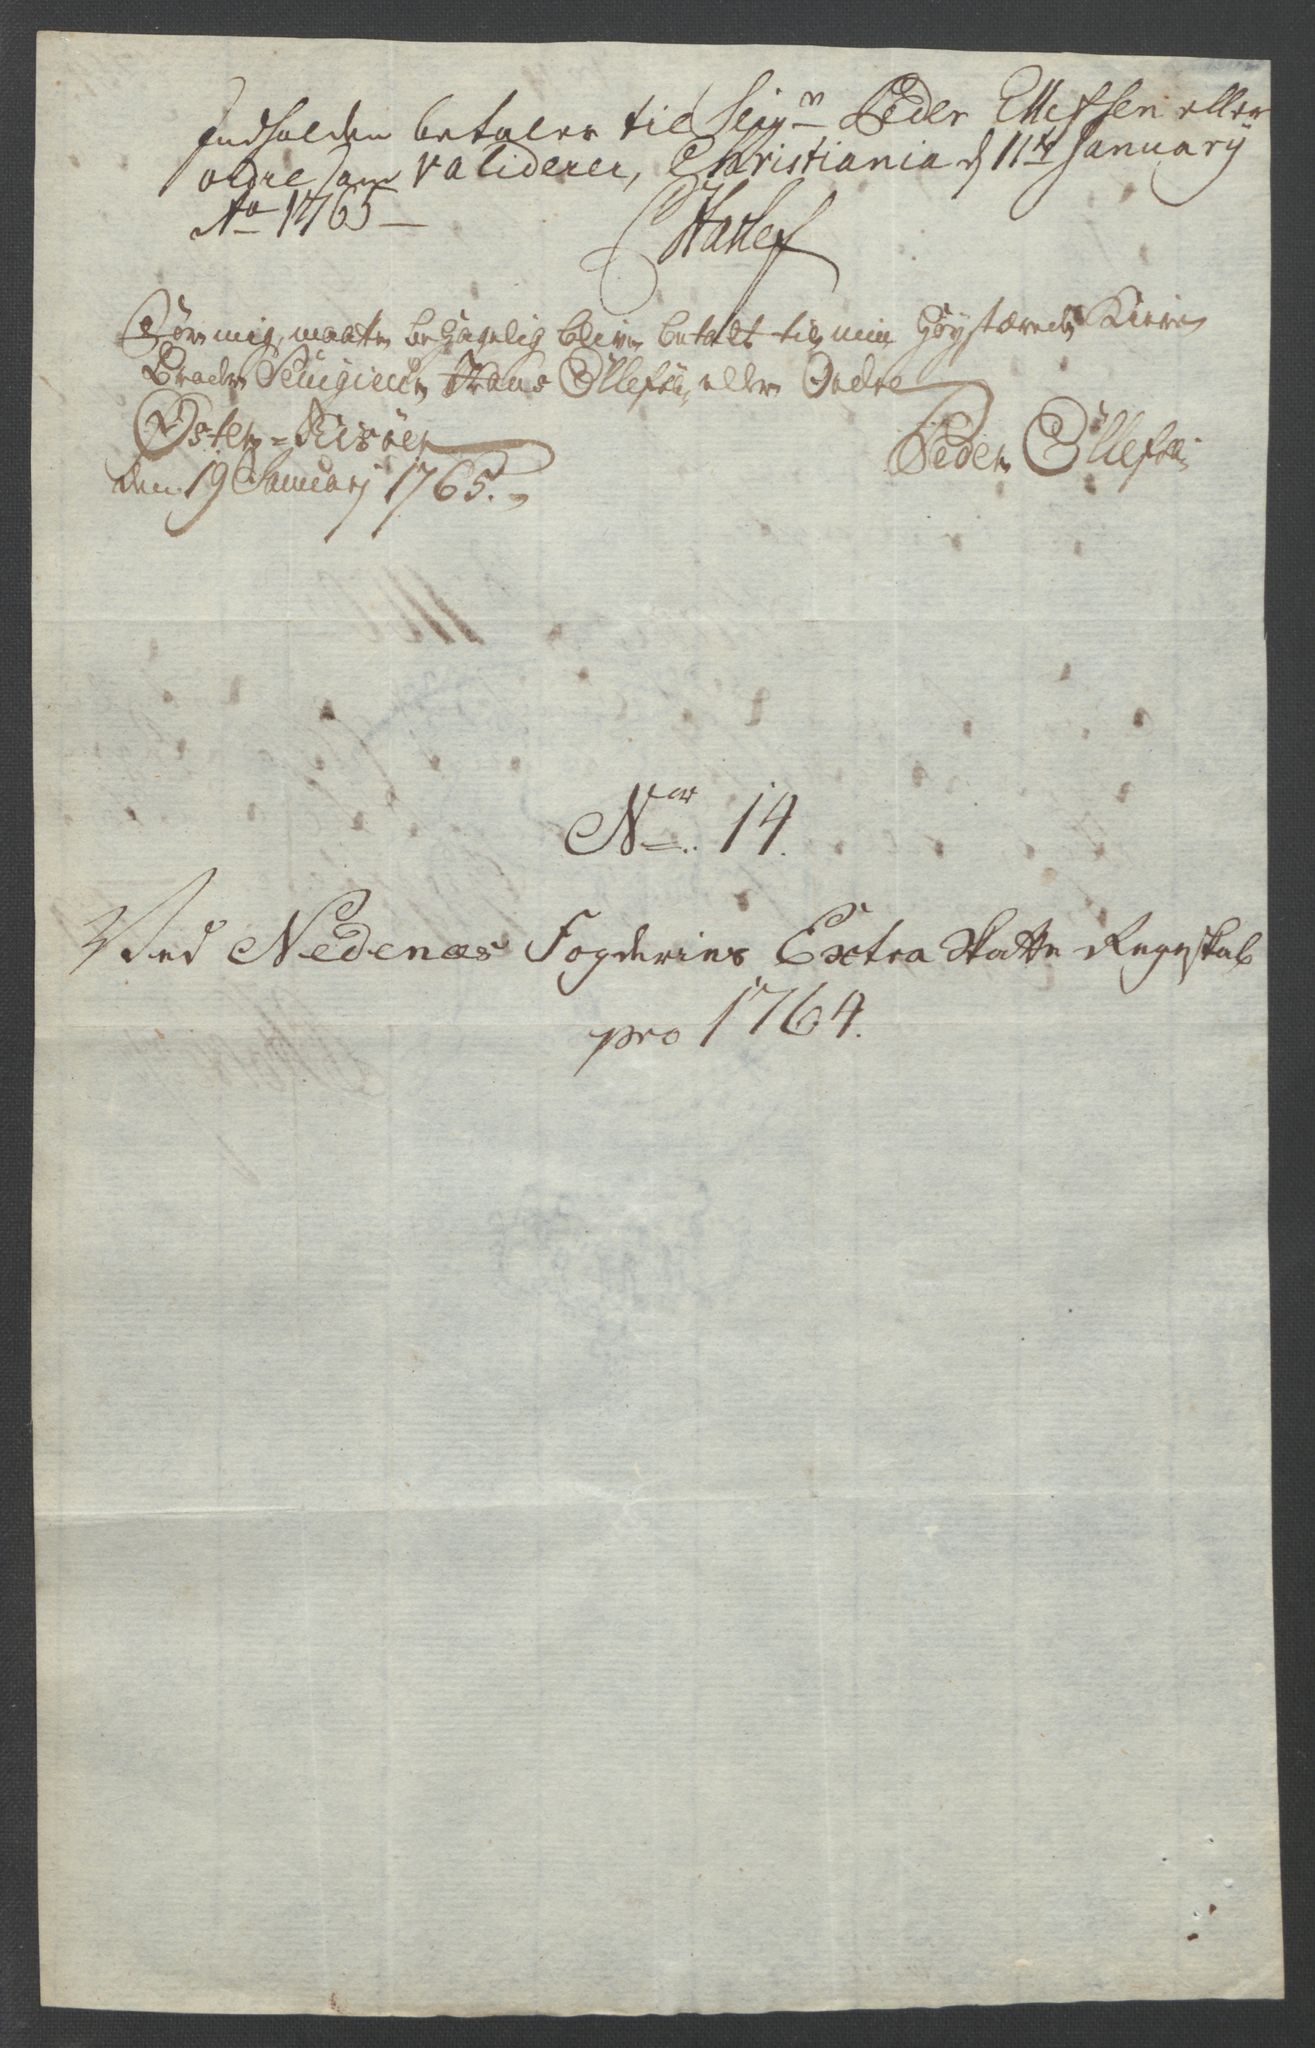 Indholden betales til Seig.n Peder Ellefsen eller
ordre som validerer, Christiania d 11te January
Ao 1765
Før mig, maatte behagelig blive betalt til min Høystærede Kiere
Broder Seugieur Hans Ellefsen, eller Ordre
Øster-Riisøer
den 19 Januarj 1765.
Peder Ellefsen
Nor. 14.
Ved Nedenæs Fogderies Extra Skatte Regnskab
pro 1764.